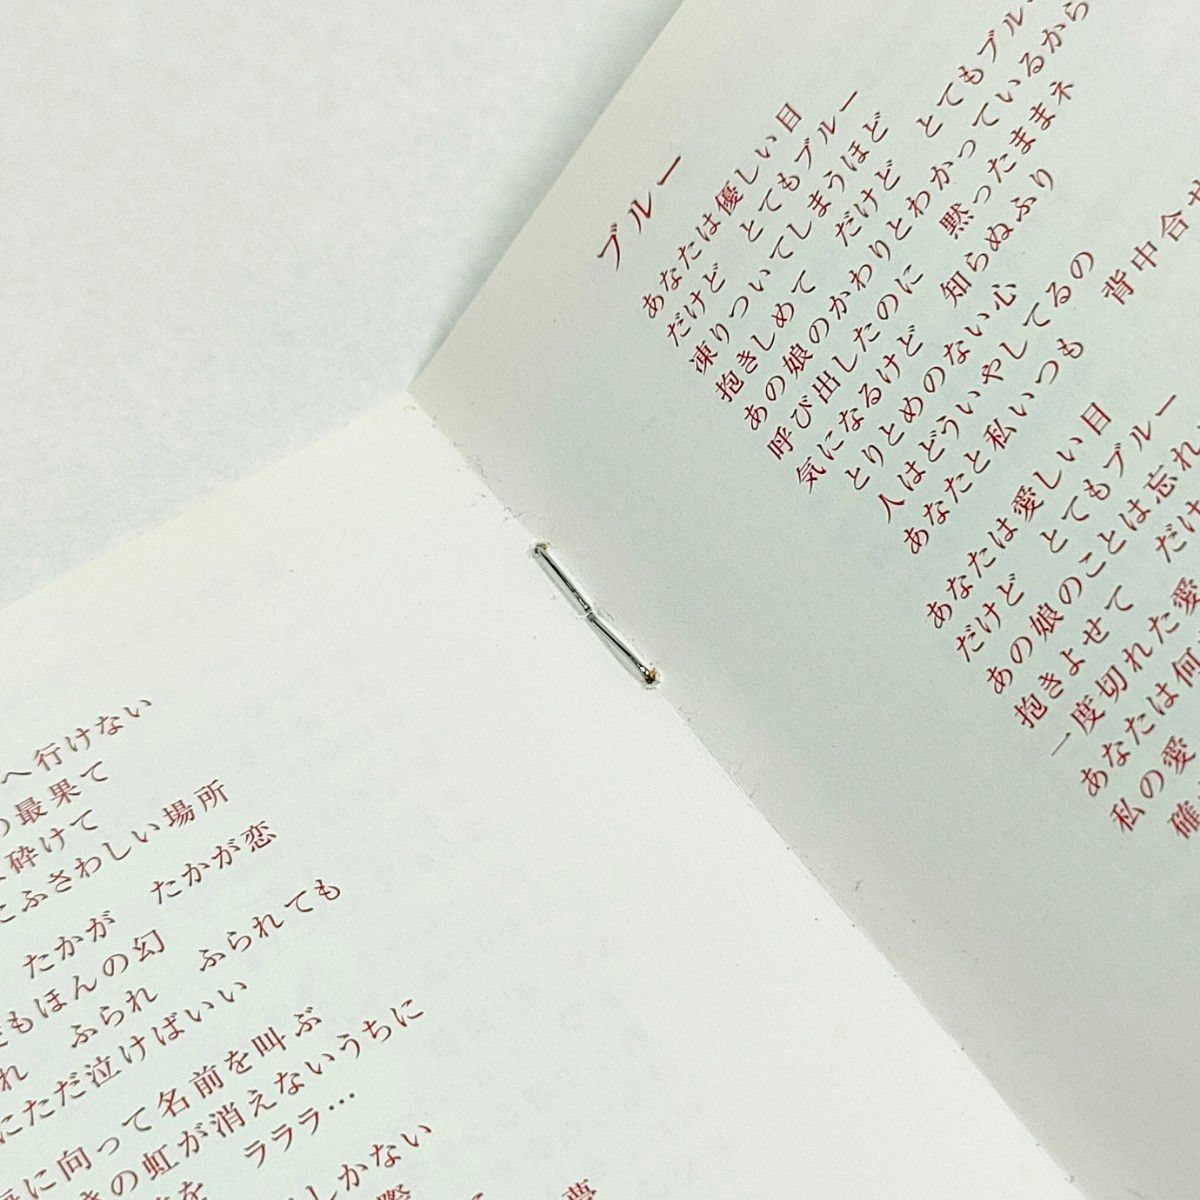 へ行けない
の最果て
砕けて
にふさわしい場所
たかが　たかが恋
もほんの幻
れ　ふられ　ふられても
にただ泣けばいい
に向って名前を叫ぶ
きの虹が消えないうちに
を　ラララ…
しかない
夢
ブルー
あなたは優しい目
だけど　とてもブルー
凍りついてしまうほど
抱きしめて　だけど　とてもブルー
あの娘のかわりとわかっているから
呼び出したのに　黙ったままネ
気になるけど　知らぬふり
とりとめのない心
人はどういやしてるの
あなたと私いつも　背中合せ
あなたは愛しい目
だけど　とてもブルー
あの娘のことは忘れ
抱きよせて　だけ
一度切れた愛
あなたは何
私の愛
確